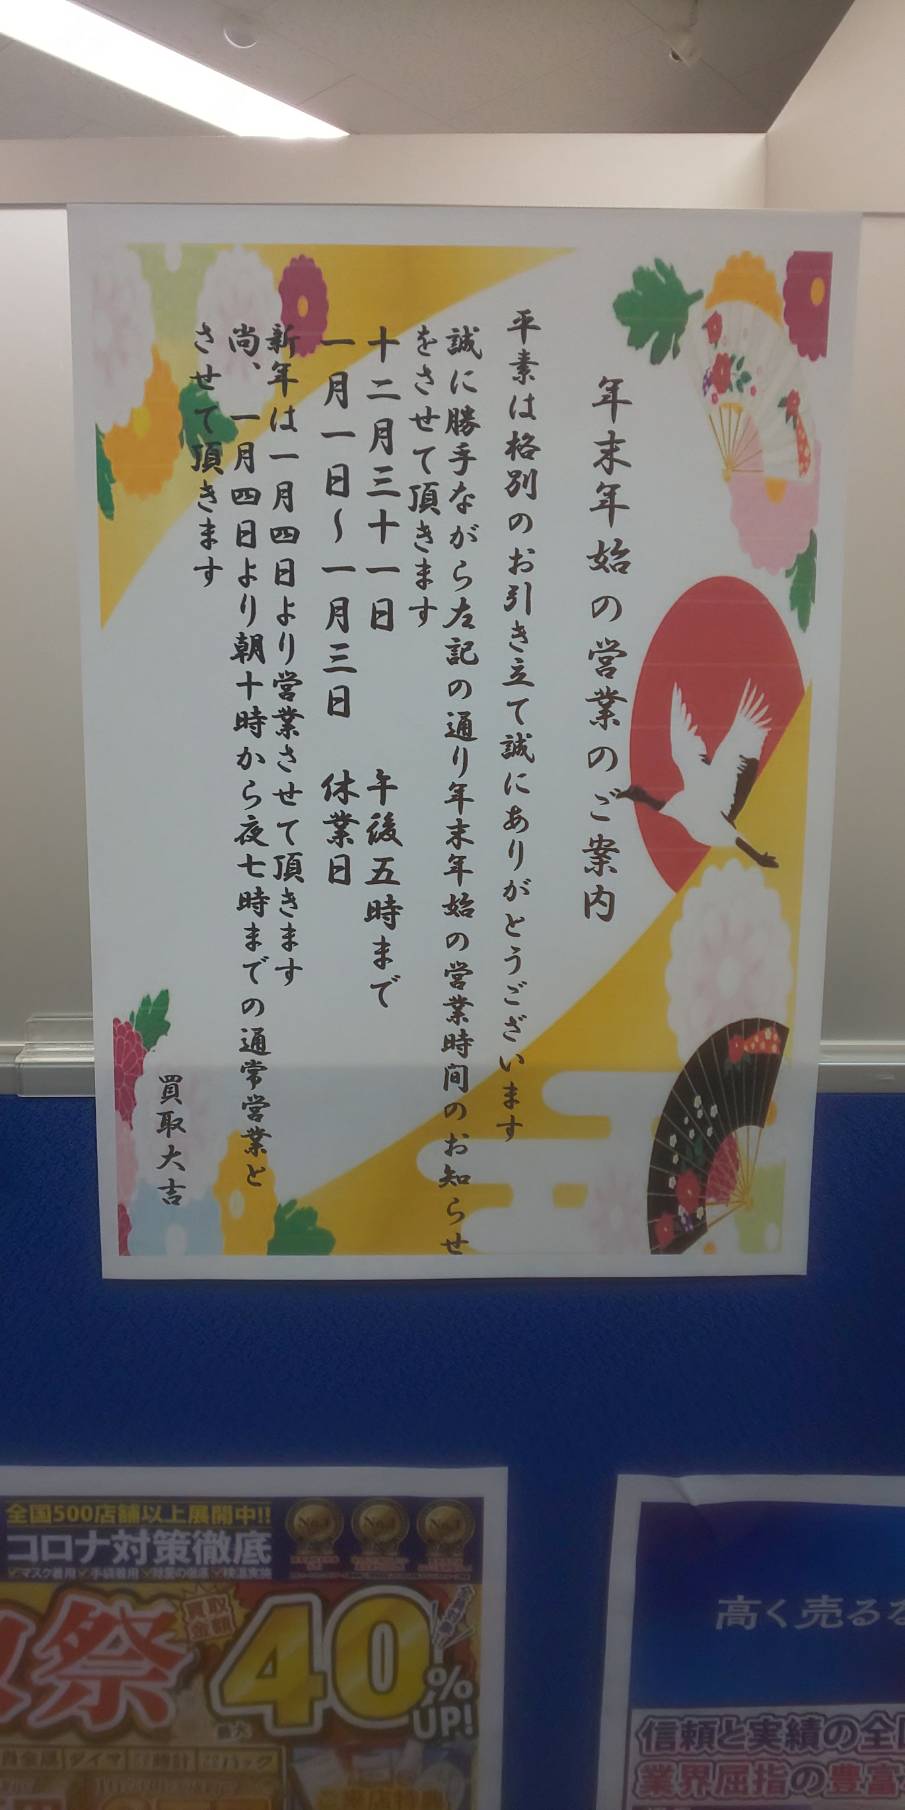 年末年始の営業のご案内
平素は格別のお引き立て誠にありがとうございます
誠に勝手ながら左記の通り年末年始の営業時間のお知らせ
をさせて頂きます
十二月三十一日　午後五時まで
一月一日～一月三日　休業日
新年は一月四日より営業させて頂きます
尚、一月四日より朝十時から夜七時までの通常営業と
させて頂きます
買取大吉
全国500店舗以上展開中!!
コロナ対策徹底
マスク着用 手袋着用 検温実施
祭
買取金額
最大
40%UP!
ダイヤ 時計 バッグ
高く売るな
信頼と実績の全国
業界屈指の豊富